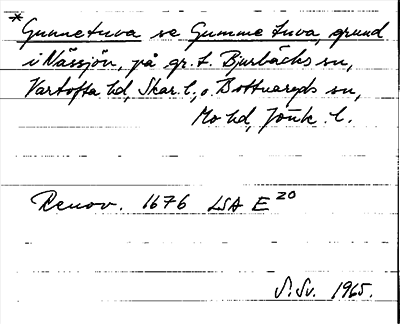 * Gunnetuva se Gumme tuva, grund
i Nässjön, på gr. t. Bjurbäcks sn,
Vartofta hd, Skar. l., o. Bottnaryds sn,
Mo hd, Jönk. l.
Renov. 1676 LSA E 20
S. Sv. 1965.